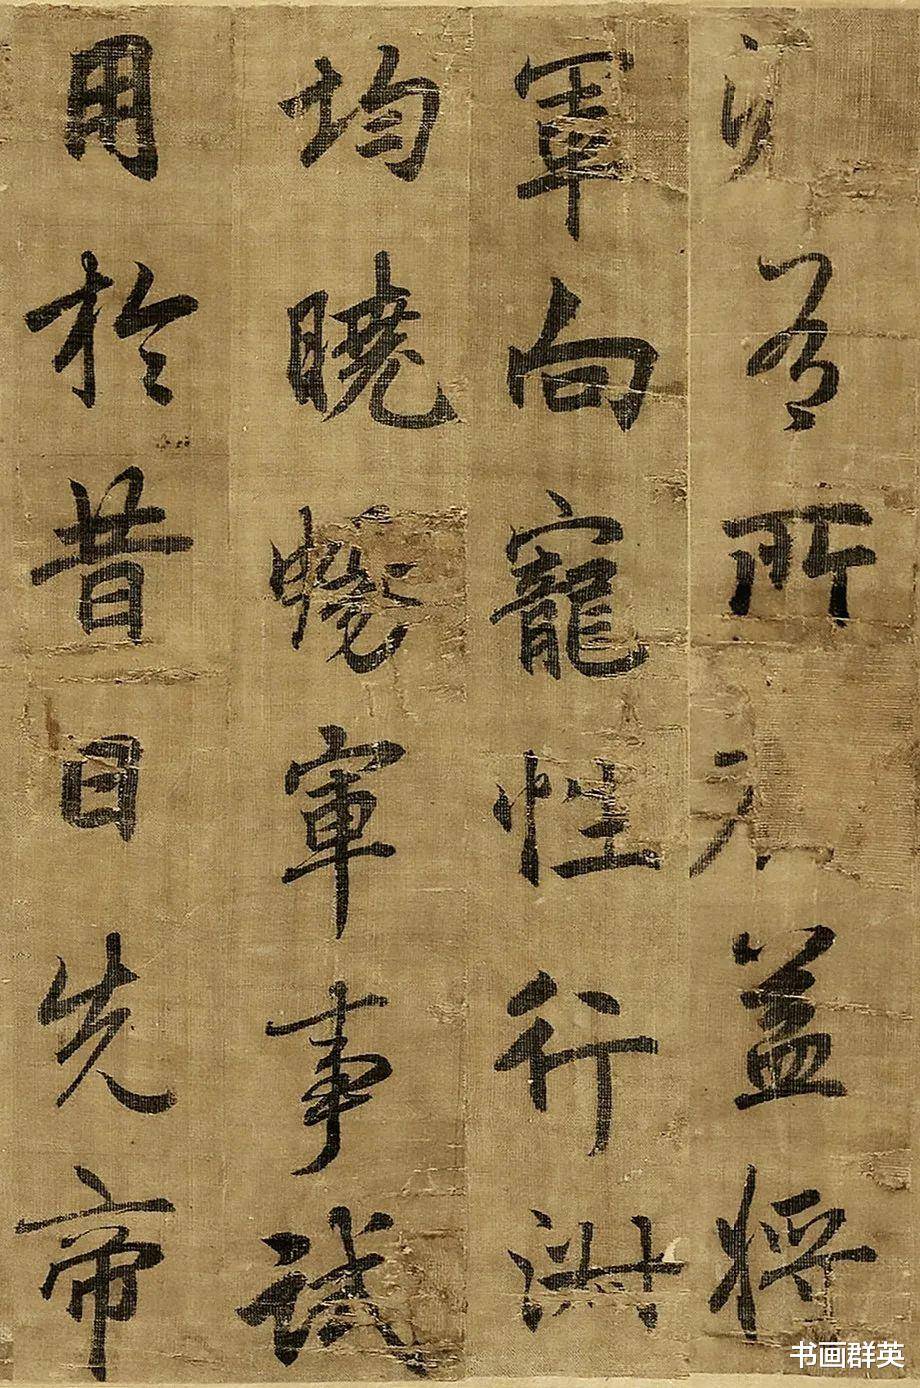 有所益將
軍向寵性行淑
均曉暢軍事試
用於昔日先帝
书画群英